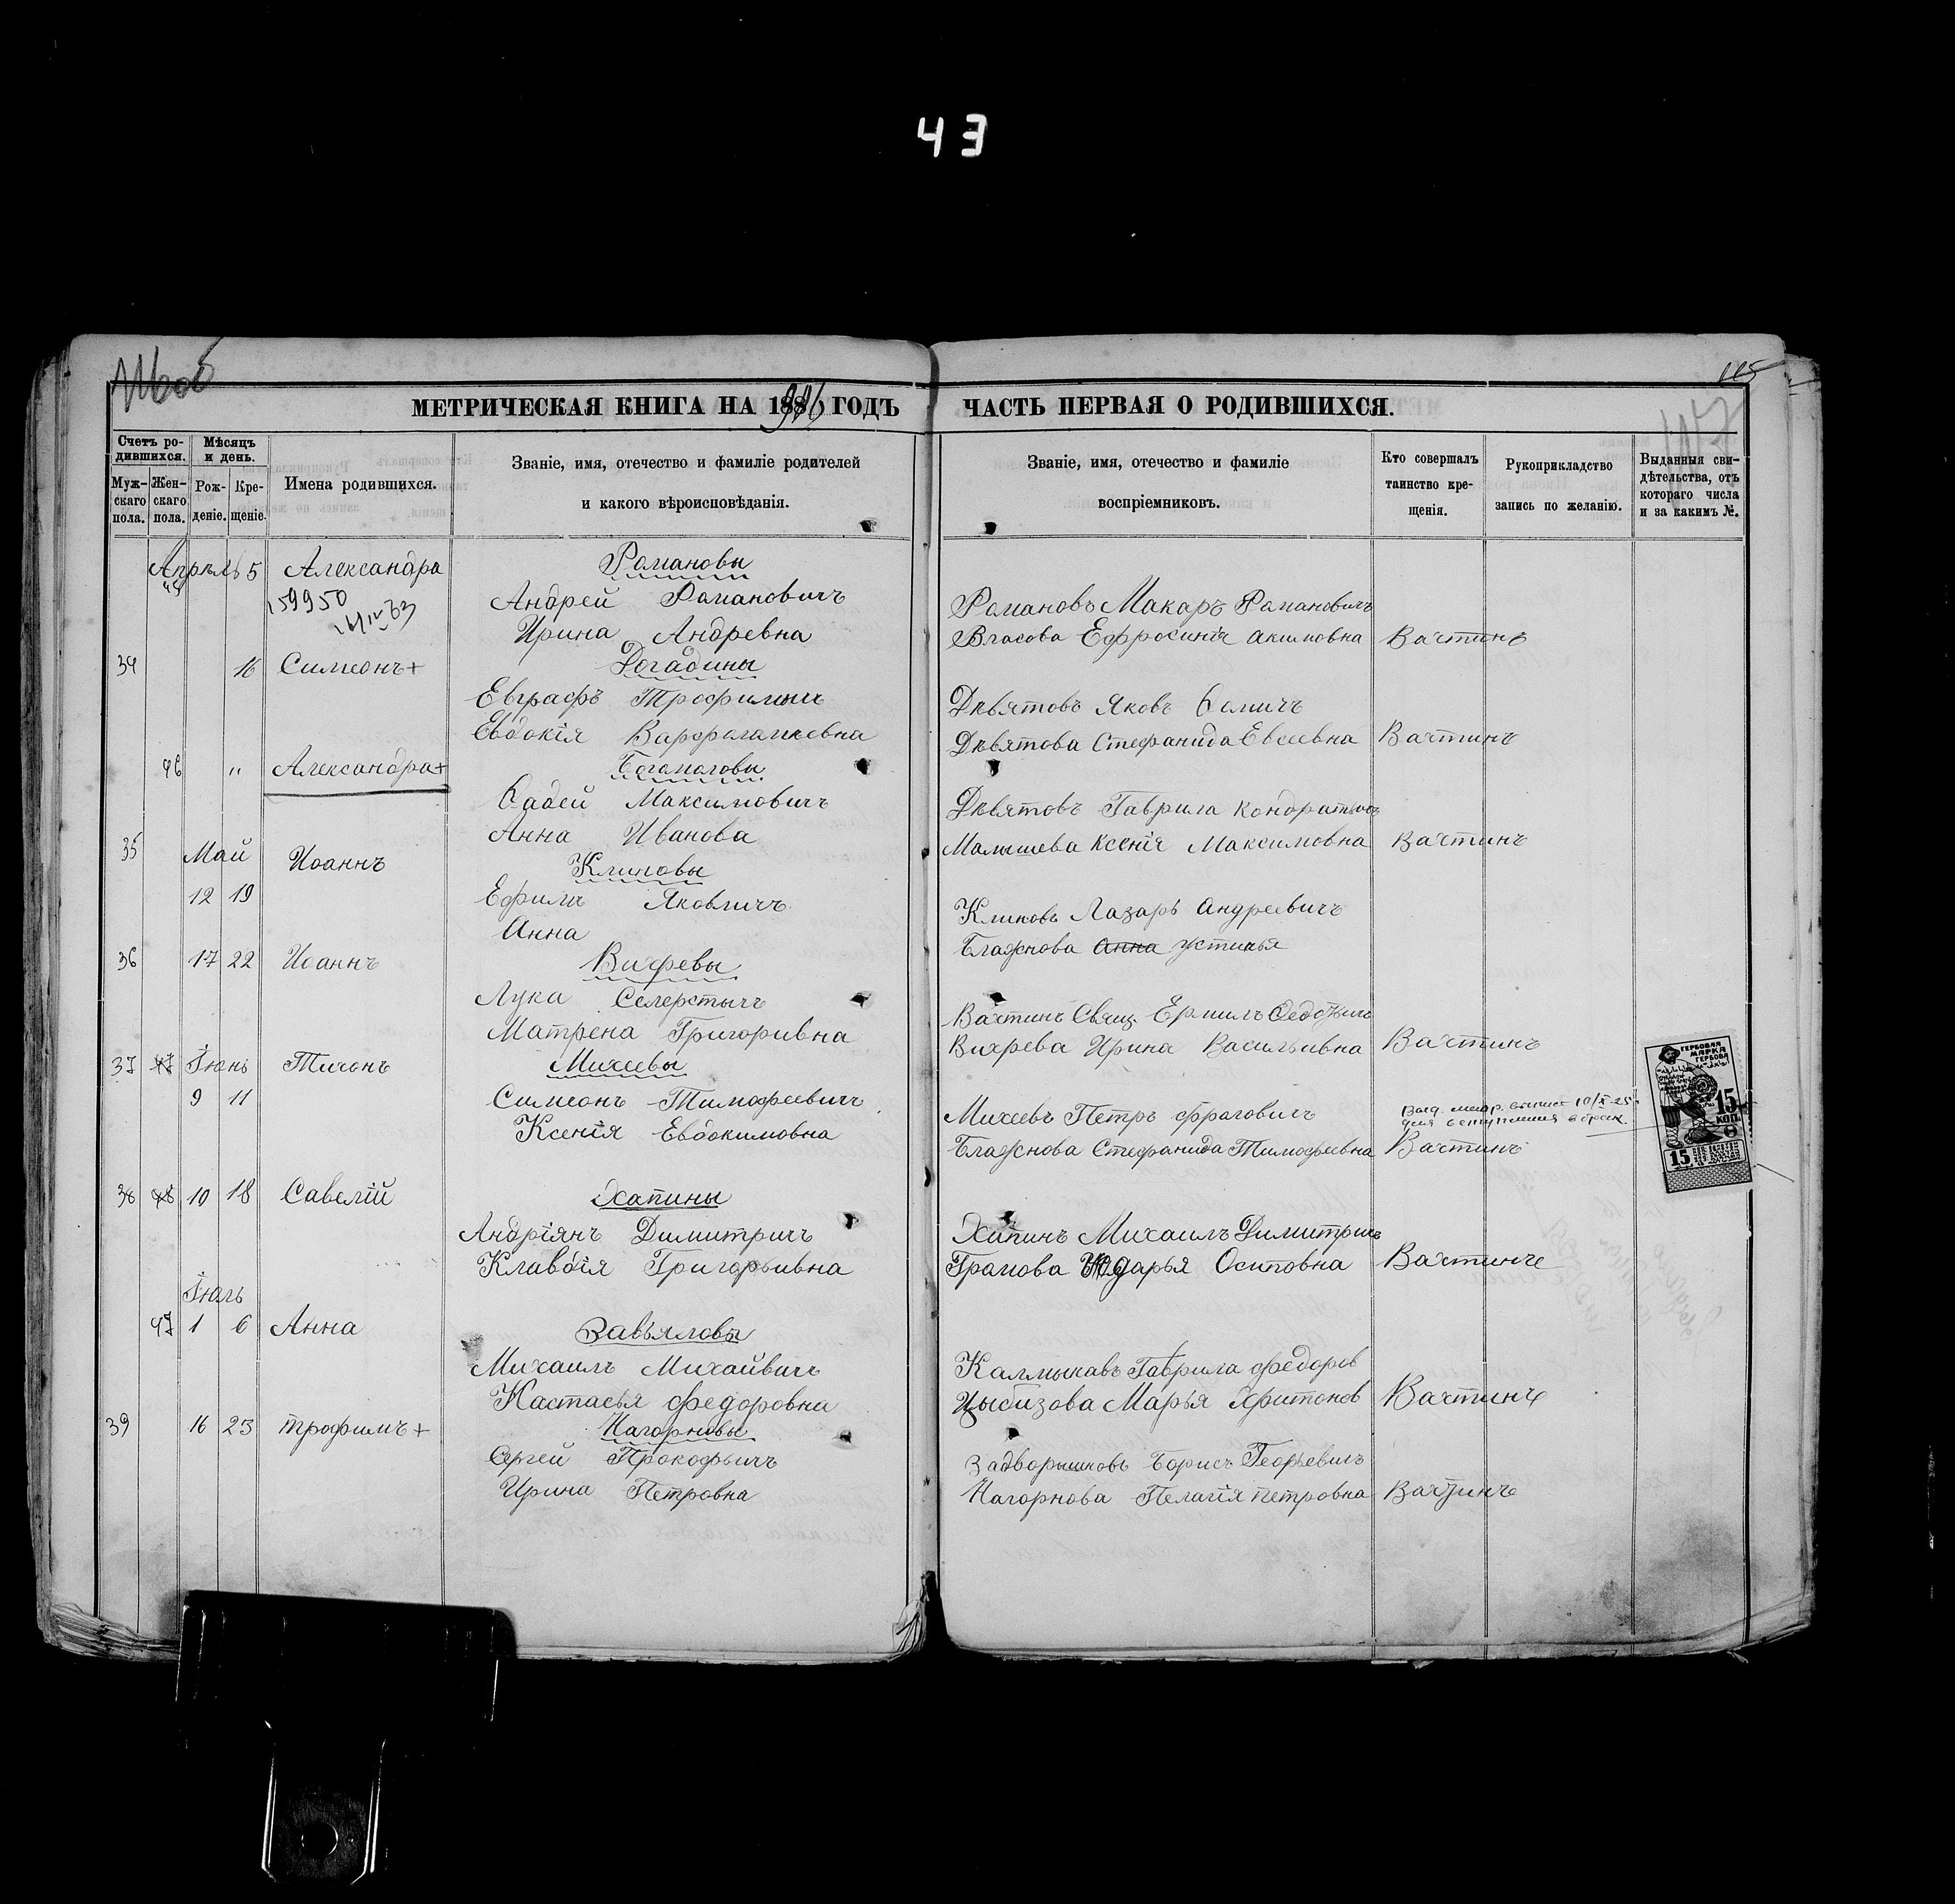 43
115
МЕТРИЧЕСКАЯ КНИГА НА 1886 ГОДЪ
ЧАСТЬ ПЕРВАЯ О РОДИВШИХСЯ.
Счетъ ро-
дившихся.
Муж-
скаго
пола.
Жен-
скаго
пола.
Мѣсяцъ
и день.
Рож-
деніе.
Кре-
щеніе.
Имена родившихся.
Званіе, имя, отечество и фамиліе родителей
и какого вѣроисповѣданія.
Званіе, имя, отечество и фамиліе
воспріемниковъ.
Кто совершалъ
таинство кре-
щенія.
Рукоприкладство
запись по желанію.
Выданныя сви-
дѣтельства, отъ
котораго числа
и за какимъ №.
Апрель 5 Александра Романовы
45 159950 Андрей Романовичъ Романовъ Макаръ Романовичъ
Ирина Андревна Власова Ефросинія Акимовна Вахтинъ
34 16 Симеонъ+ Догадины
Евграфъ Трофимычъ Дѣвятовъ Яковъ
Евдокія Варфаламеевна Дѣвятова Стефанида Евсеевна Вахтинъ
46 " Александра+ Богомаговы
Фадей Максимовичъ Дѣвятовъ Гаврила Кондратьичъ
Анна Иванова Малышева Ксенія Максимовна Вахтинъ
35 Май Иоаннъ Климовы
12 19 Ефимъ Яковличъ Климовъ Лазарь Андреевичъ
Анна Блажнова Анна Устинья
36 17 22 Иоаннъ Вихревы
Лука Селерстычъ Вахтинъ Свящ. Ермилъ
Матрена Григоривна Вихрева Ирина Васильивна Вахтинъ
37 47 Іюнь Тихонъ Михеевы
9 11 Симеонъ Тимофеевичъ Михеевъ Петръ Фраловичъ
Ксенія Евдокимовна Блажнова Стефанида Тимофеевна Вахтинъ
Выд. метр. выпись 10/X-25
для вступления в брак.
ГЕРБОВАЯ
МАРКА
15
КОП
15
38 48 10 18 Савелій Хапины
Андріянъ Димитричъ Хапинъ Михаилъ Димитричъ
Клавдія Григорьивна Грамова Дарья Осиповна Вахтинъ
Іюль
47 1 6 Анна Завьяловы
Михаилъ Михайвичъ Калмыкавъ Гаврила Федоров
Настасья Федоровна Цыбизова Марья Харитонов Вахтинъ
39 16 23 Трофимъ+ Нагорновы
Сергей Прокофьичъ Задворышновъ Борисъ Георьевичъ
Ирина Петровна Нагорнова Пелагія Петровна Вахтинъ